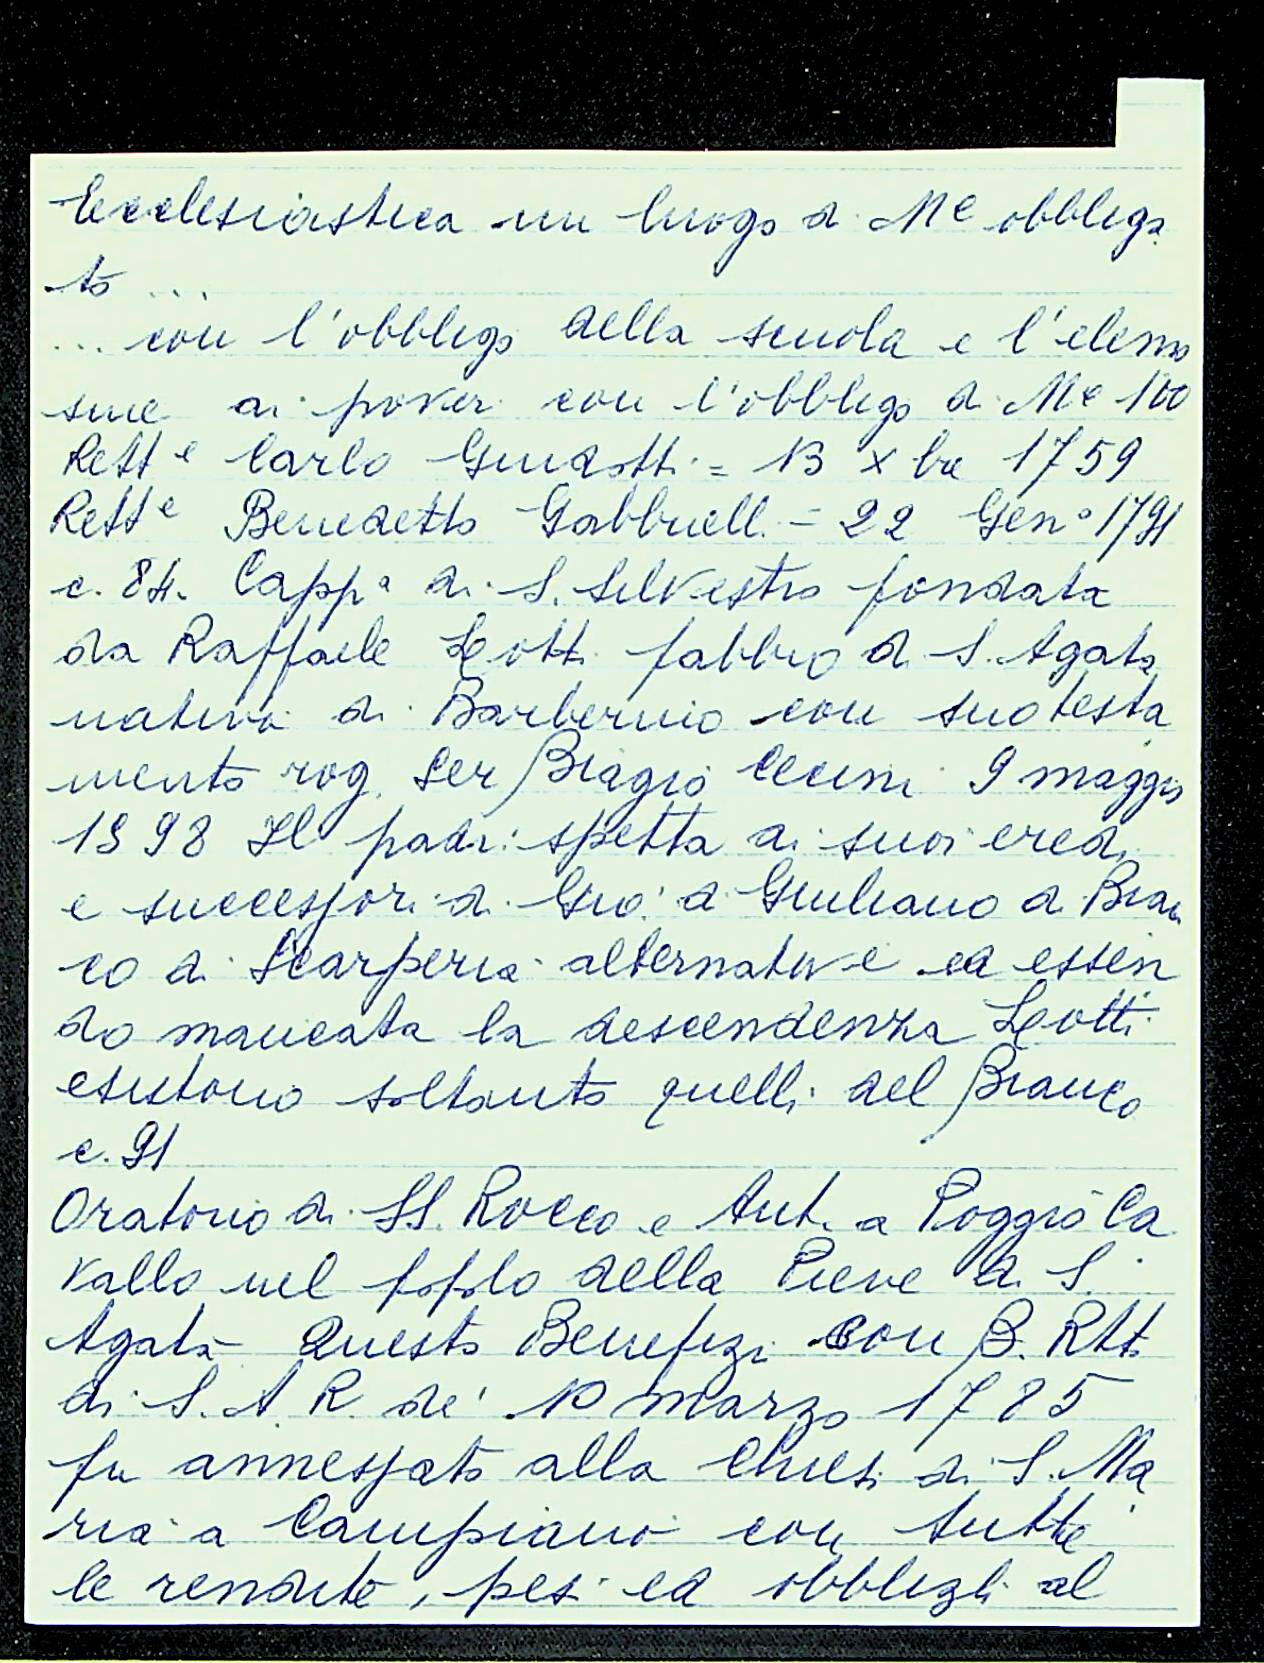 Ecclesiastica un luogo di Me obbliga
to ...
... con l'obbligo della scuola e l'elemo
sine ai poveri con l'obbligo di Me 100
Rett e Carlo Guidotti = 13 Xbre 1759
Rett e Benedetto Gabbrielli = 22 Gen° 1791
c. 84. Capp a di S. Silvestro fondata
da Raffaele Leotti fabbro di S. Agata
nativo di Barberino con suo testa
mento rog. Ser Biagio 9 maggio
1598 Il padr: spetta ai suoi eredi
e successori di Gio: di Giuliano di Bian
co di Scarperia alternative ed essen
do mancata la descendenza Leotti
esistono soltanto quelli del Bianco
c. 91
Oratorio di SS. Rocco e Ant. a Poggio Ca
vallo nel popolo della Pieve di S.
Agata Questo Benefizi con B. Rtt.
di S. A R. de' 10 marzo 1785
fu annessato alla Chies. di S. Ma
ria a Campiano con tutte
le rendite, pesi ed obblighi al